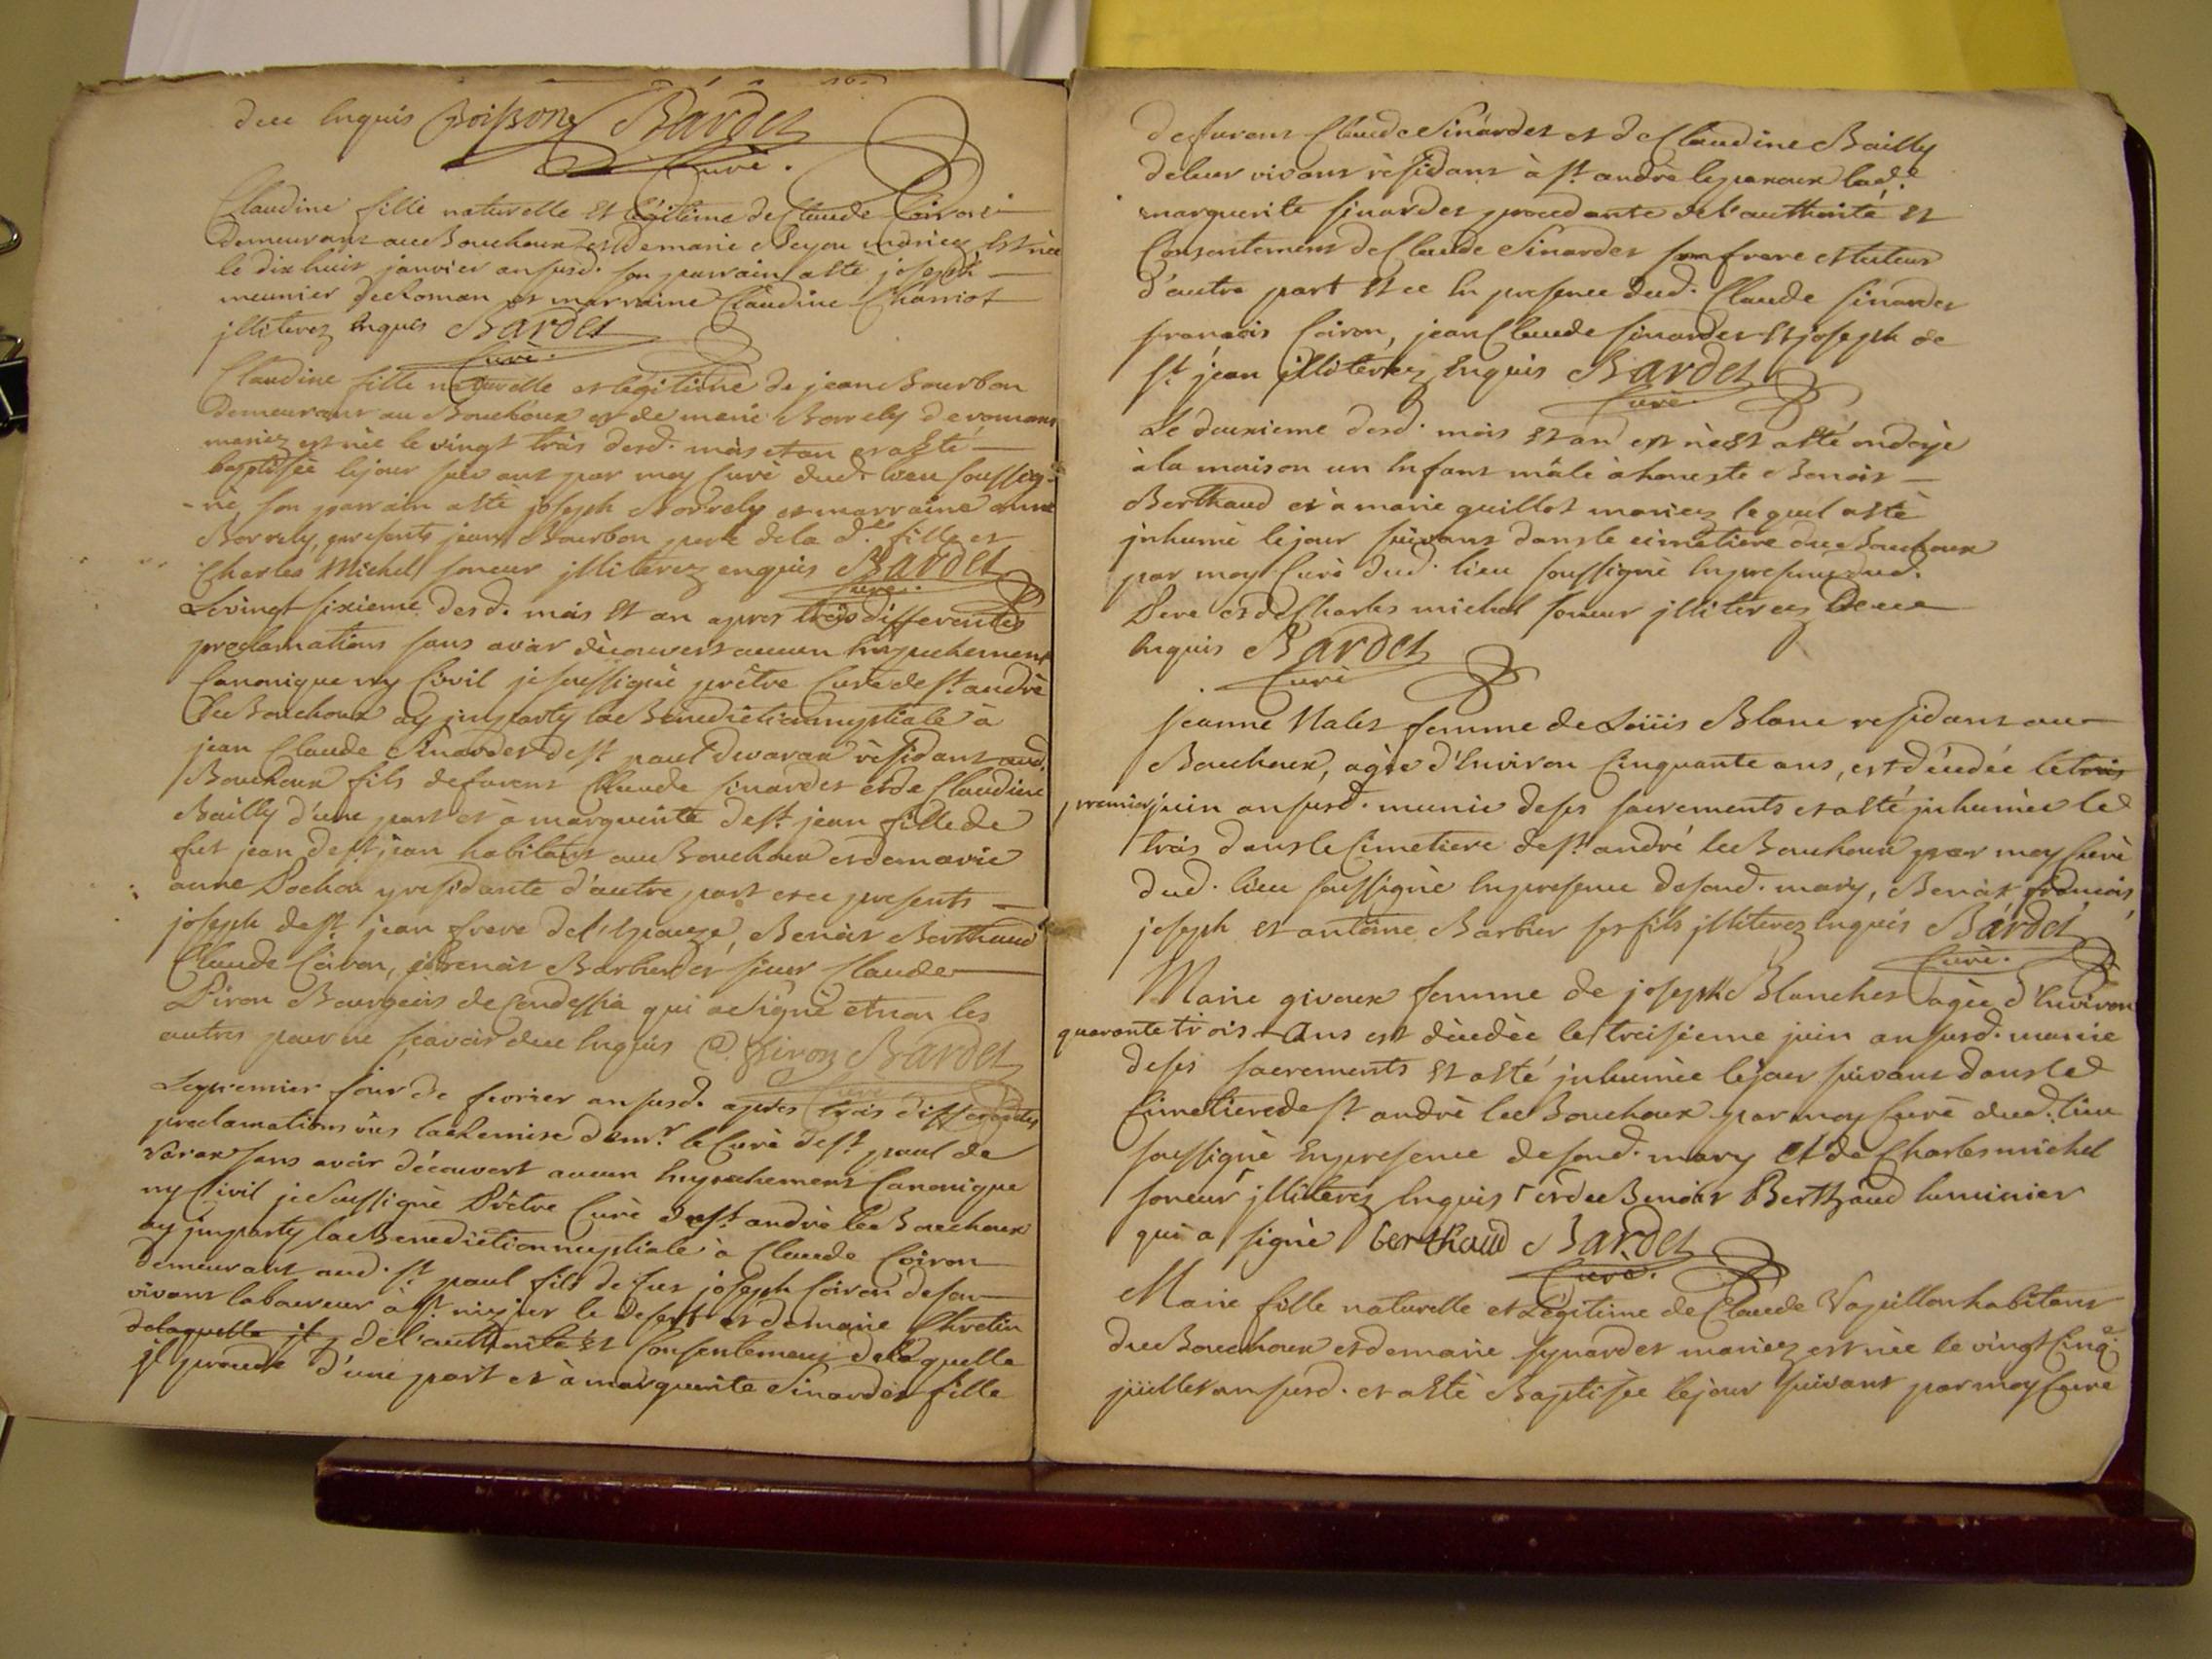 due Enquis Poisson Bardet
Curé.
Claudine fille naturelle et légitime de Claude Coiron
demeurant au Bouchoux et de marie mariez est née
le dix huit janvier an susd. son parrain a été joseph
meunier de Roman et marraine Claudine Charriot
jlliterez enquis Bardet
Curé.
Claudine fille naturelle et légitime de jean Bourbon
demeurant au Bouchoux et de marie Borrely de romans
mariez est née le vingt trois desd. mois et an et a été
baptisée le jour suivant par moy Curé dud. lieu soussig-
-né, son parrain a été joseph Borrely et marraine anne
Borrely, presents jean Bourbon pere de la d.e fille et
Charles Michel soneur jlliterez enquis Bardet
Curé.
Le vingt sixieme desd. mois et an apres trois differentes
proclamations sans avoir découvert aucun Empechement
Canonique ny Civil je soussigné prêtre Curé de st. andré
le Bouchoux ay jmparty la Benediction nuptiale à
jean Claude Sinardet de st. paul de varax résidant aud.
Bouchoux fils de furent Claude sinardet et de Claudine
Bailly d'une part et à marguerite de st. jean fille de
fut jean de st. jean habitant au Bouchoux et de marie
anne Pochon y residante d'autre part et ce presents
joseph de st. jean frere de l'Epouze, Benoit Berthaud
Claude Coiron, Benoit Barbier et sieur Claude
Piron Bourgeois de Condessia qui a signé et non les
autres pour ne sçavoir due Enquis C. Piron Bardet
Curé
Le premier jour de fevrier an susd. apres trois differentes
proclamations vüs la Remise de mr. le Curé de st. paul de
Varax sans avoir découvert aucun Empechement Canonique
ny Civil je soussigné Prêtre Curé de st. andré le Bouchoux
ay jmparty la Benediction nuptiale à Claude Coiron
demeurant aud. st. paul fils de fut joseph Coiron de son
vivant laboureur à st. nizier le desert et de marie Chretin
de laquelle jl de l'authorité et Consentement de laquelle
jl procede d'une part et à marguerite Sinardet fille
de furent Claude Sinardet et de Claudine Bailly
de leur vivant résidant à st. andré le panoux lad.e
marguerite sinardet procedante de l'authorité et
Consentement de Claude Sinardet son frere et tuteur
d'autre part et ce En presence dud. Claude sinardet
françois Coiron, jean Claude sinardet et joseph de
st. jean jlliterez Enquis Bardet
Curé.
Le deuxieme desd. mois et an est né et a été ondoyé
à la maison un Enfant mâle à honeste Benoit
Berthaud et à marie guillot mariez lequel a été
jnhumé le jour suivant dans le cimetiere du Bouchoux
par moy Curé dud. lieu soussigné En presence dud.
Pere et de Charles michel soneur jlliterez Deue
Enquis Bardet
Curé
jeanne Nalet femme de Loüis Blanc residant au
Bouchoux, agée d'Environ Cinquante ans, est décédée le trois
premier juin an susd. munie de ses sacrements et a été jnhumée le
trois dans le Cimetiere de st. andré le Bouchoux par moy Curé
dud. lieu soussigné En presence de sond. mary, Benoit françois,
joseph et antoine Barbier ses fils jlliterez Enquis Bardet
Curé.
Marie givoux femme de joseph Blanchet agée d'Environ
quarante trois Ans est décédée le treisieme juin an susd. munie
de ses sacrements et a été jnhumée le jour suivant dans le
Cimetiere de st. andré le Bouchoux par moy Curé dud. lieu
soussigné En presence de sond. mary et de Charles michel
soneur jlliterez Enquis et de Benoit Berthaud luminier
qui a signé berthaud Bardet
Curé.
Marie fille naturelle et Legitime de Claude Vapillon habitant
du Bouchoux et de marie synardet mariez est née le vingt Cinq
juillet an susd. et a été Baptisée le jour suivant par moy Curé